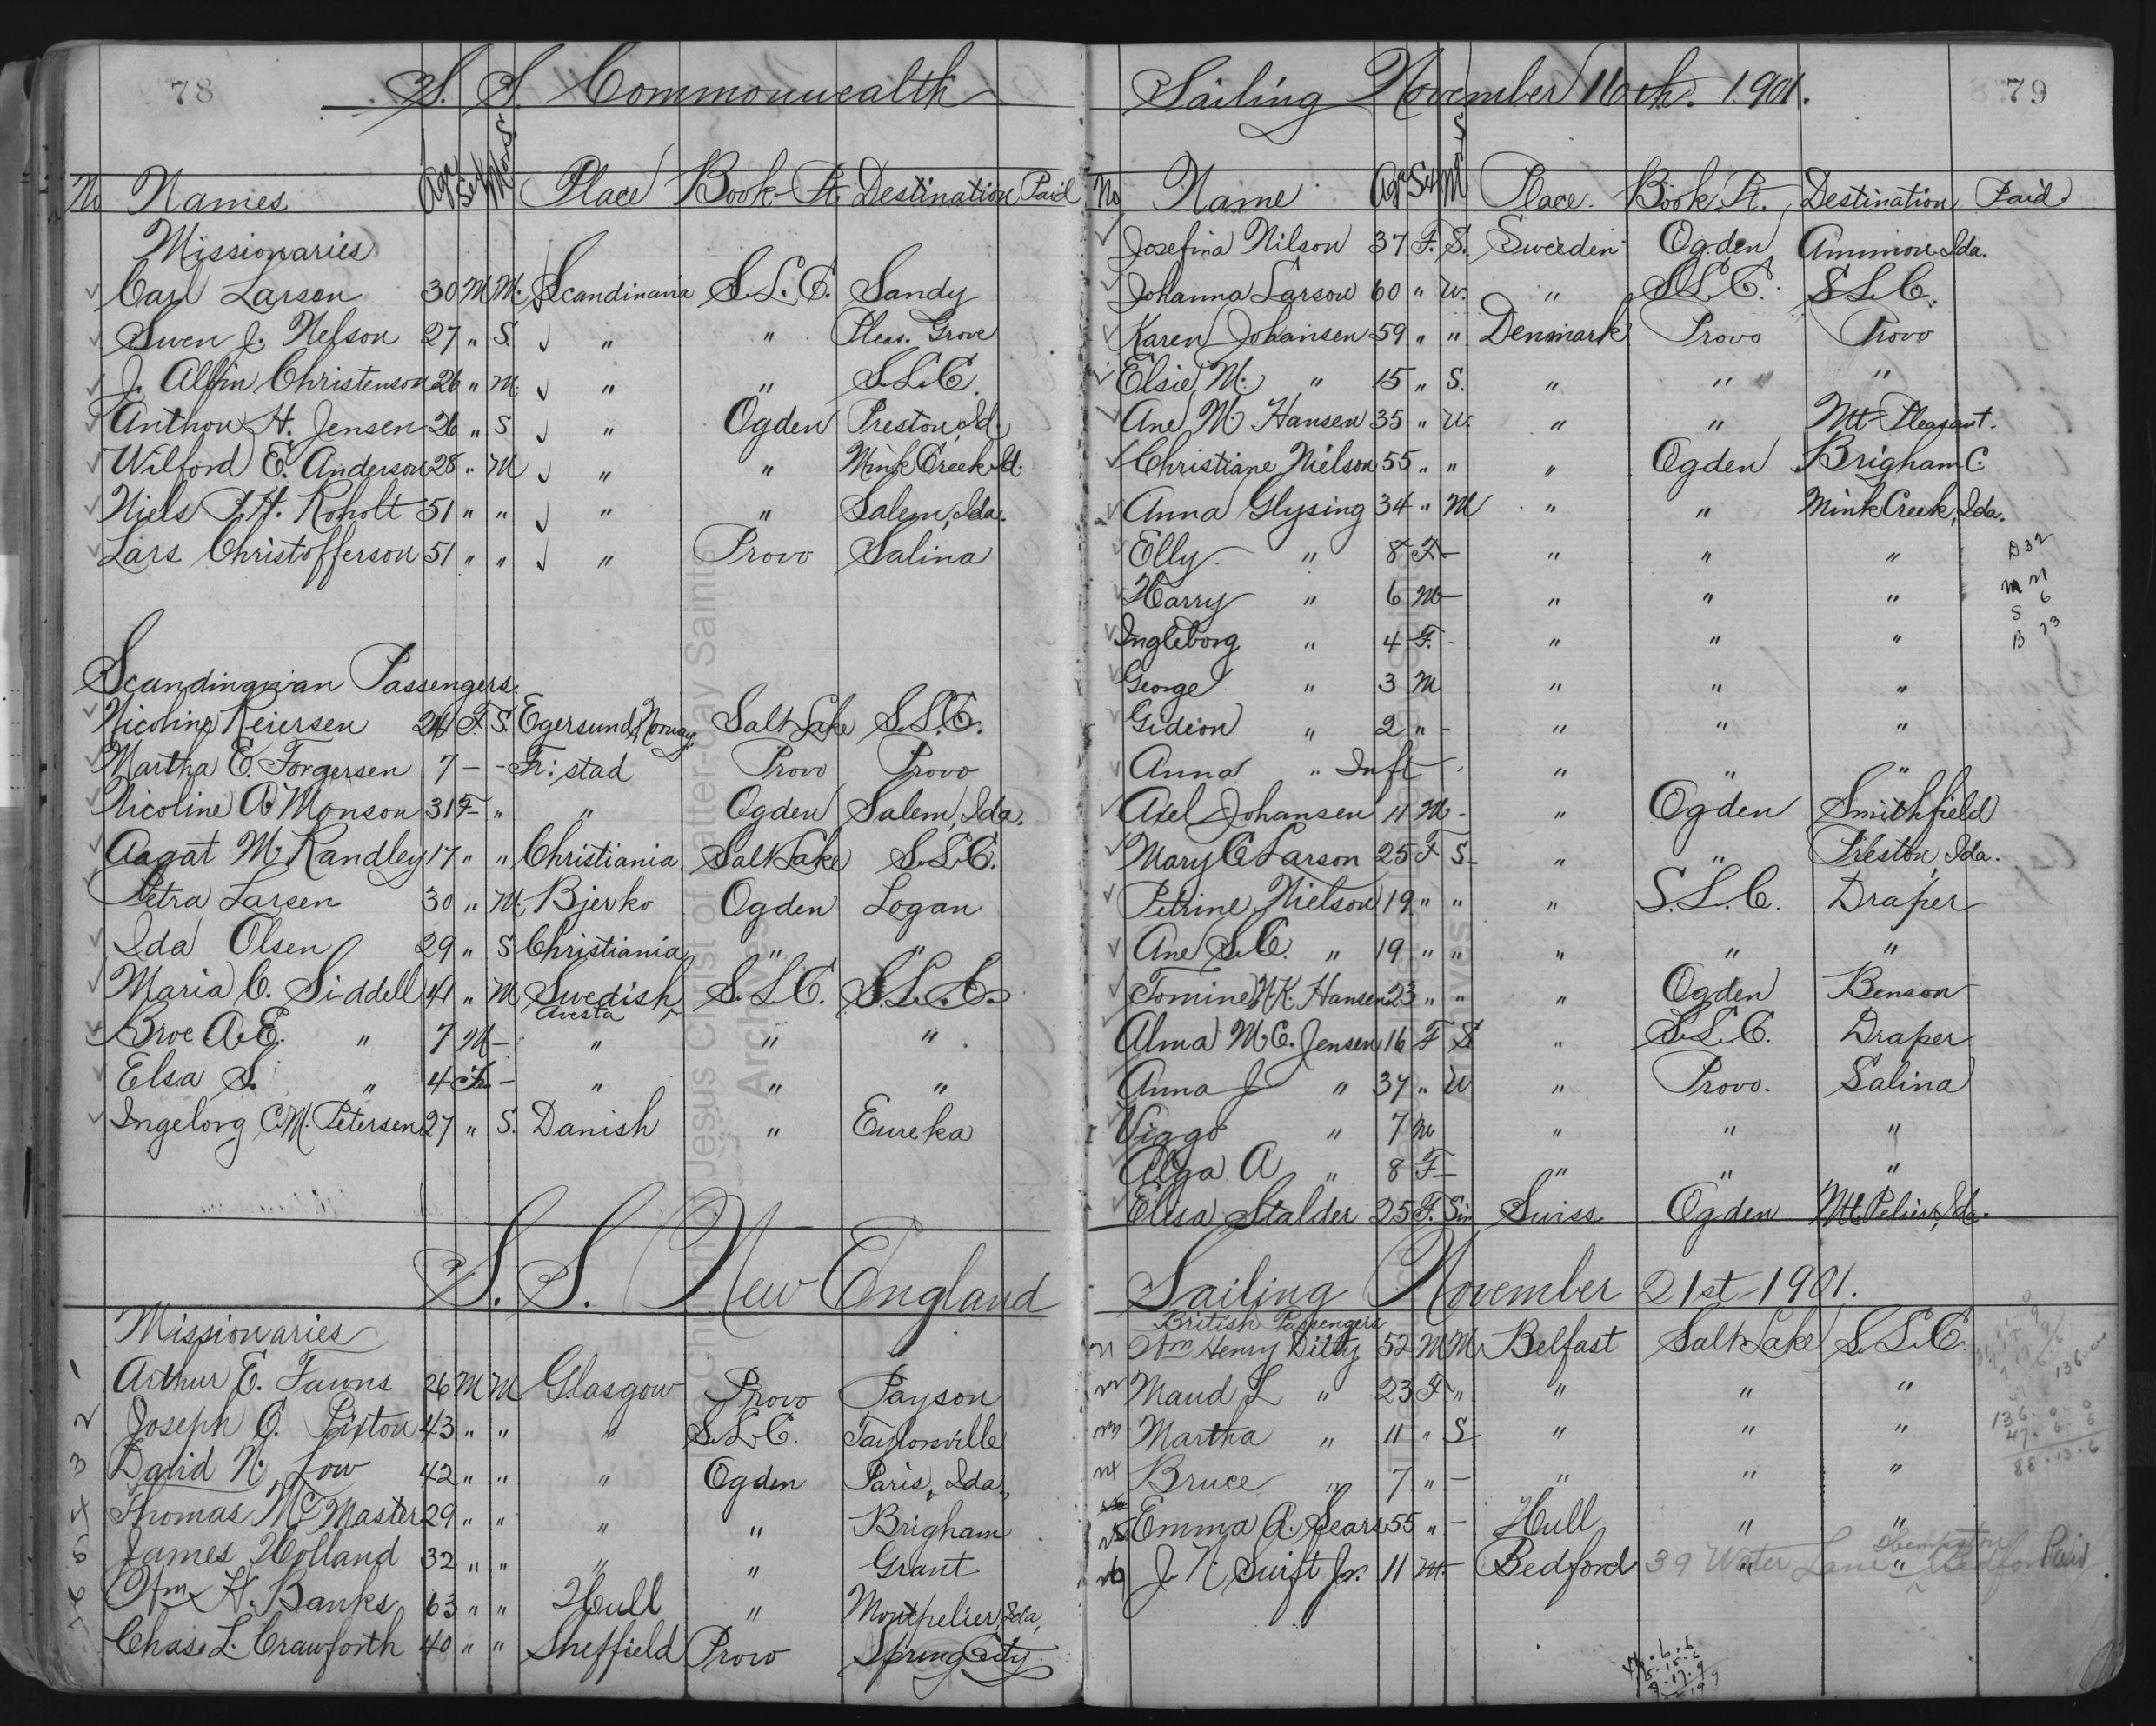 78
S. S. Commonwealth
No Names Age Sex M or S Place Book Pt. Destination Paid
Missionaries
Carl Larsen 30 M M. Scandinavia S.L.C. Sandy
Swen J. Nelson 27 " S. " " Pleas. Grove
J. Alfin Christenson 26 " M. " " S.L.C.
Anthon H. Jensen 26 " S " Ogden Preston, Id.
Wilford E. Anderson 28 " M " " Mink Creek Id.
Niels P.H. Roholt 51 " " " " Salem, Ida.
Lars Christofferson 51 " " " Provo Salina
Scandinavian Passengers.
Nicoline Reiersen 24 F. S. Egersund, Norway. Salt Lake S.L.C.
Martha E. Torgersen 7 – - Fr: stad Provo Provo
Nicoline A Monson 31 F " " Ogden Salem, Ida.
Aagat M. Randley 17 " " Christiania Salt Lake S.L.C.
Petra Larsen 30 " M Bjerko Ogden Logan
Ida Olsen 29 " S Christiania " "
Maria C. Siddell 41 " M Swedish S.L.C. S.L.C.
Avesta
Broe A.E. " 7 M – " " "
Elsa S. " 4 F. – " " "
Ingelorg C.M. Petersen 27 " S. Danish " Eureka
S. S. New England
Missionaries
1 Arthur E. Fawns 26 M M Glasgow Provo Payson
2 Joseph C. Pixton 43 " " " S.L.C. Taylorsville
3 David N. Low 42 " " " Ogden Paris, Ida.
4 Thomas McMaster 29 " " " " Brigham
5 James Holland 32 " " " " Grant
6 Wm H. Banks 63 " " Hull " Montpelier, Ida,
7 Chas. L. Crawforth 40 " " Sheffield Provo Spring City.
79
Sailing November 16th. 1901.
No Name Age Sex M S Place. Book Pt. Destination Paid
Josefina Nilson 37 F. S. Sweeden Ogden Ammon Ida.
Johanna Larson 60 " W. " S.L.C. S.L.C.
Karen Johansen 59 " " Denmark Provo Provo
Elsie M. " 15 " S. " " "
Ane M. Hansen 35 " W. " " Mt Pleasant.
Christiane Nielson 55 " " " Ogden Brigham C.
Anna Glysing 34 " M " " Mink Creek, Ida.
Elly " 8 F – " " "
Harry " 6 M – " " "
Ingleborg " 4 F. - " " "
George " 3 M " " "
Gidion " 2 " - " " "
Anna " Inft - " " "
Axel Johansen 11 M - " Ogden Smithfield
Mary C Larson 25 F S. " " Preston, Ida.
Petrine Nielson 19 " " " S.L.C. Draper
Ane S.C. " 19 " " " " "
Tomine N.K. Hansen 23 " " " Ogden Benson
Alma M.C. Jensen 16 F S " S.L.C. Draper
Anna J " 37 " W. " Provo. Salina
Viggo " 7 M " " "
Olga A " 8 F – " " "
Elisa Stalder 25 F. Sin Swiss Ogden Mt. Pelier, Ida.
Sailing November 21st 1901.
British Passengers
21 Wm Henry Ditty 52 M M Belfast Salt Lake S.L.C.
22 Maud L " 23 F " " " "
23 Martha " 11 " S " " "
24 Bruce " 7 " – " " "
25 Emma A. Sears 55 " – Hull " "
26 J. N. Swift Jr. 11 M. Bedford 39 Water Lane " Bedford Paid
136. 0. 0
47. 6. 6
88. 13. 6